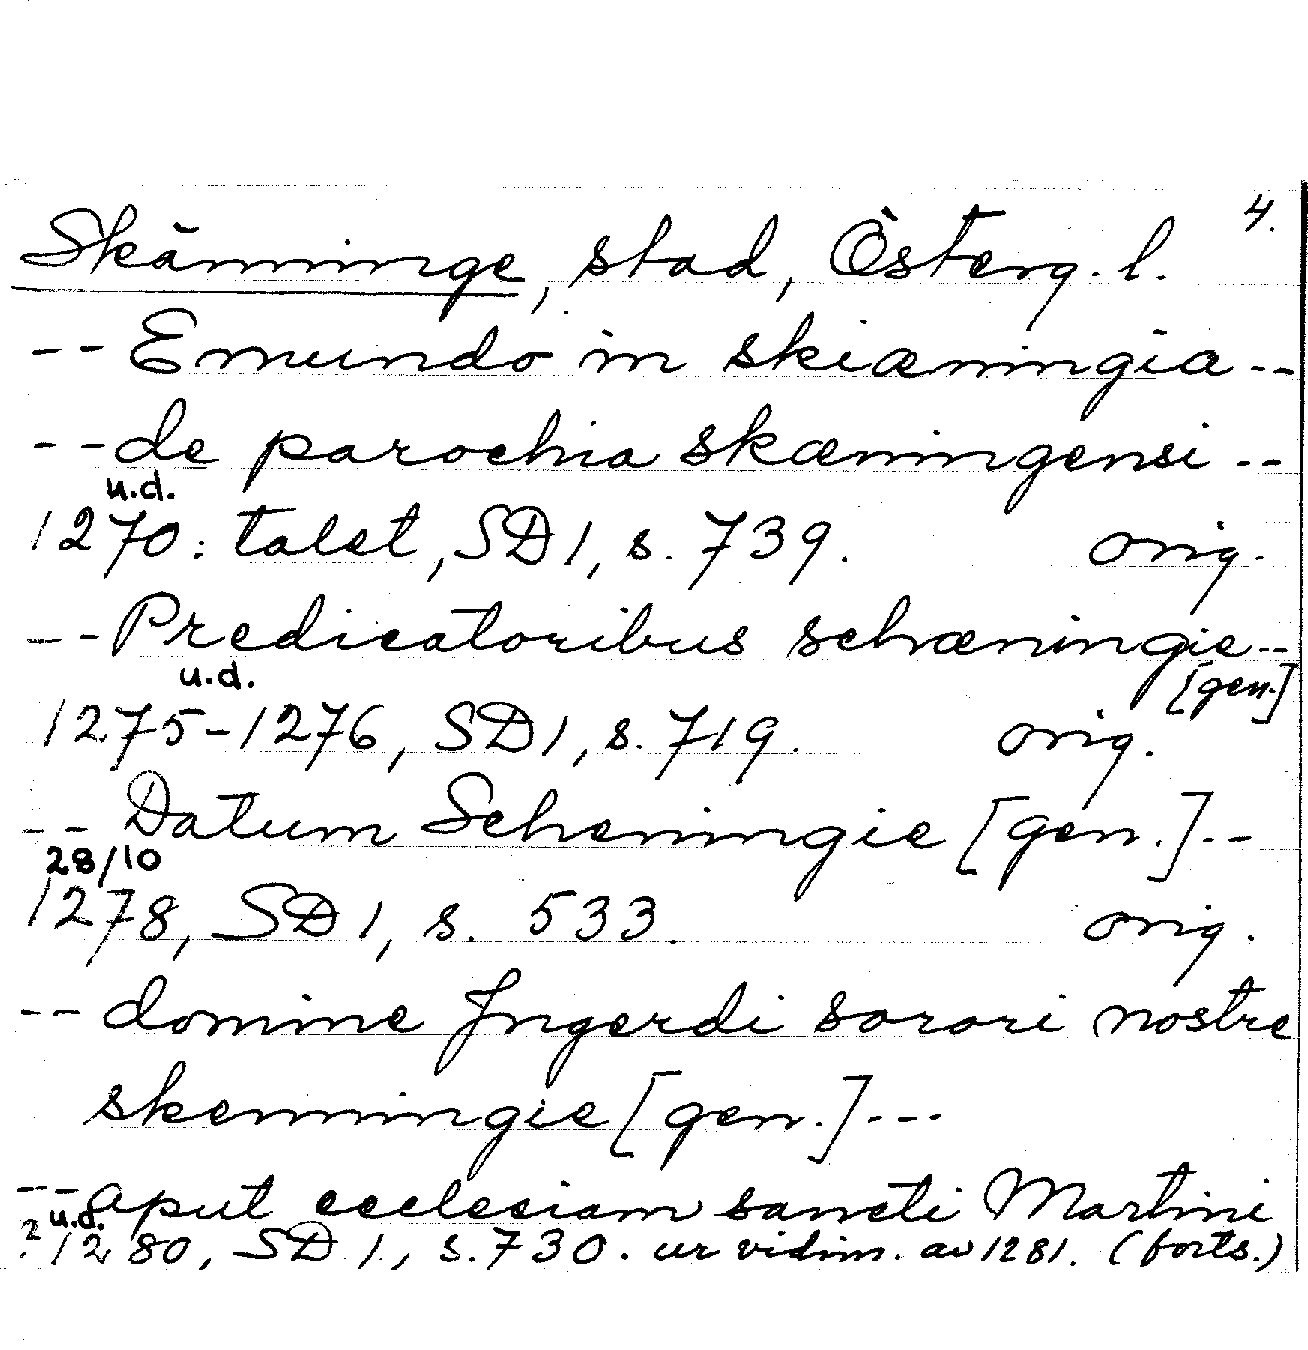 4.
Skänninge, stad, Österg. l.
-- Emundo in skiæningia --
-- de parochia skæningensi --
u.d.
1270: talet, SD 1, s. 739. orig.
-- Predicatoribus schæningie --
u.d. [gen.]
1275-1276, SD 1, s. 719. orig.
-- Datum Scheningie [gen.] --
28/10
1278, SD 1, s. 533. orig.
-- domine Jngerdi sorori nostre
skenningie [gen.] ---
-- aput ecclesiam sancti Martini
u.d.
? 1280, SD 1, s. 730. ur vidim. av 1281. (forts.)